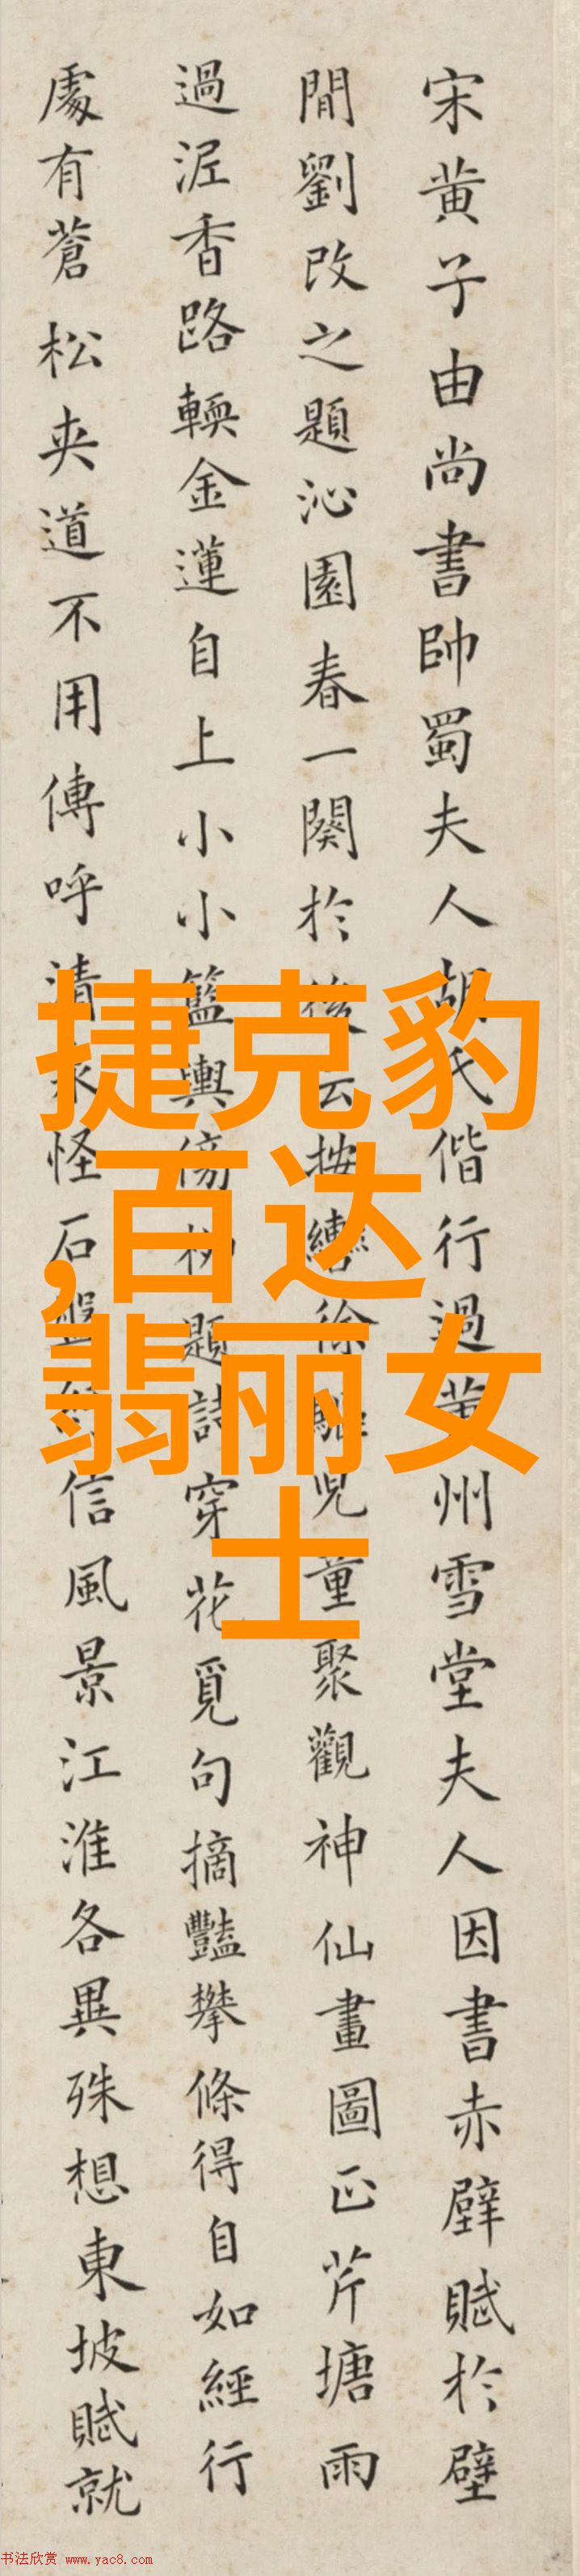 宋黄子由尚書帥蜀夫人胡氏偕行過黄州雪堂夫人因書赤壁賦於壁
間劉改之題沁園春一闋於後云按轡徐驅兒童聚觀神仙畫圖正芹塘雨
過泥香路輭金蓮自上小小籃輿傍柳題詩穿花覓句摘豔攀條得自如經行
處有蒼松夾道不用傳呼清泉怪石盤信風景江淮各異殊想東坡賦就
捷克豹
,百达
翡丽女
士
书法欣赏 www.yac8.com